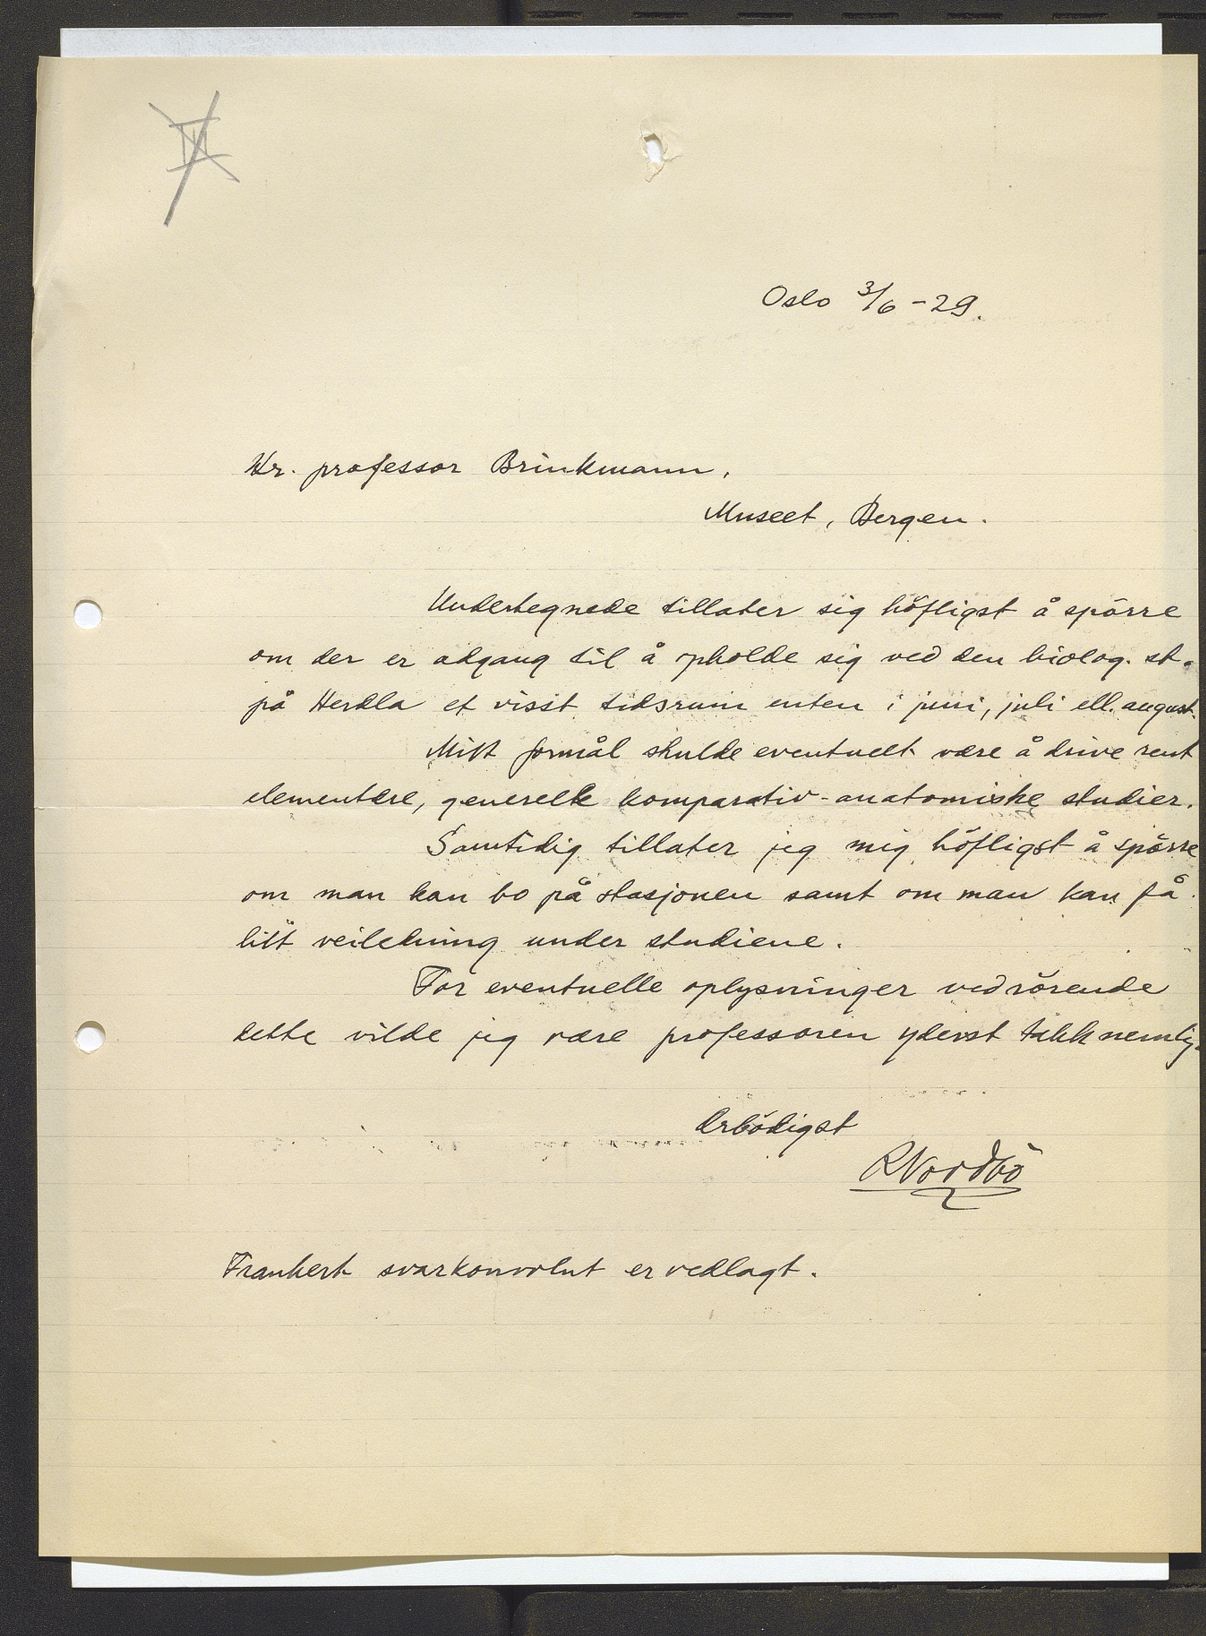 III
Oslo 3/6 - 29.
Hr. professor Brinkmann,
Museet, Bergen.
Undertegnede tillater sig höfligst å spörre
om der er adgang til å opholde sig ved den biolog. st.
på Herdla et visst tidsrum enten i juni, juli ell. august.
Mitt formål skulde eventuelt være å drive rent
elementære, generelle komparativ-anatomiske studier.
Samtidig tillater jeg mig höfligst å spörre
om man kan bo på stasjonen samt om man kan få
litt veiledning under studiene.
For eventuelle oplysninger vedrörende
dette vilde jeg være professoren yderst takknemlig.
Ærbödigst
R Nordbö
Frankert svarkonvolut er vedlagt.